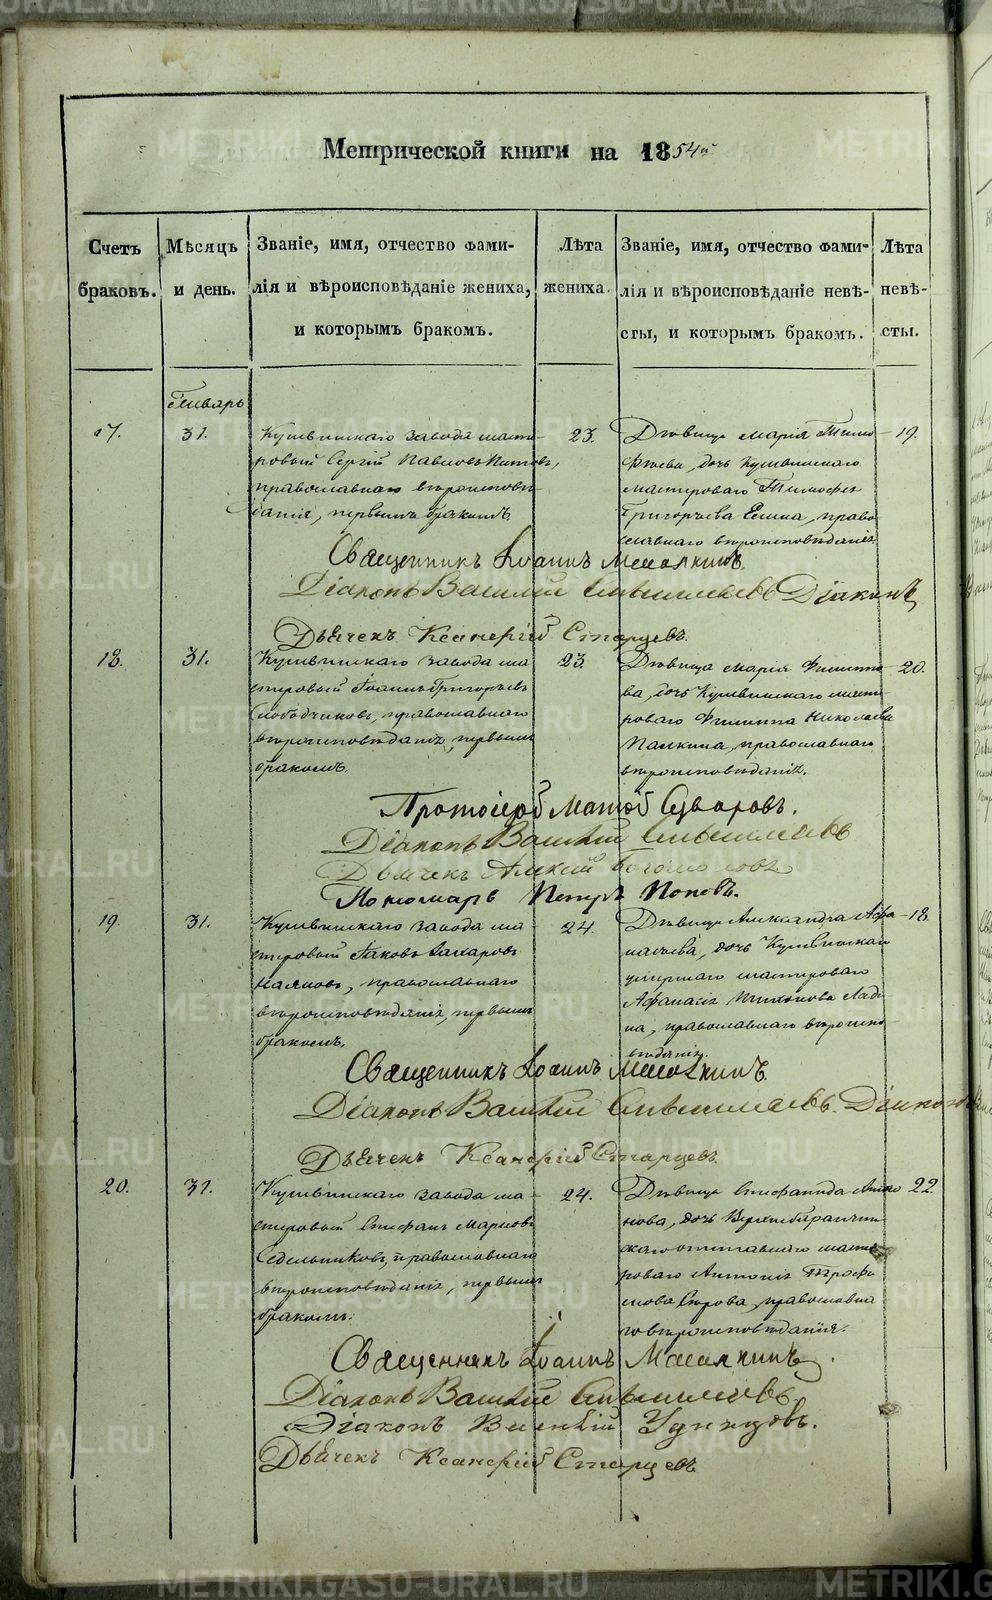 Метрической книги на 1854й
Счетъ браковъ.
Мѣсяцъ и день.
Званіе, имя, отчество фами-
лія и вѣроисповѣданіе жениха,
и которымъ бракомъ.
Лѣта жениха.
Званіе, имя, отчество фами-
лія и вѣроисповѣданіе невѣ-
сты, и которымъ бракомъ.
Лѣта невѣ-
сты.
Январь
17.
31.
Кушвинскаго завода масте-
ровый Сергій Павловъ
православнаго вѣроисповѣ-
данія, первымъ бракомъ.
23.
Дѣвица Марія Тимо-
фѣева, дочь Кушвинскаго
мастероваго Тимофея
Григорьева Ёлшна, право-
славнаго вѣроисповѣданія.
19.
Священникъ Іоаннъ
Діаконъ Василій Діаконъ
Дьячекъ Ксанѳрій Старцевъ.
18.
31.
Кушвинскаго завода ма-
стеровый Іоаннъ Григорьевъ
Слободчиковъ, православнаго
вѣроисповѣданія, первымъ
бракомъ.
23.
Дѣвица Марія Филиппо-
ва, дочь Кушвинскаго масте-
роваго Филиппа Николаева
Палкина, православнаго
вѣроисповѣданія.
20.
Протоіерей Матѳій Суворовъ.
Діаконъ Василій
Дьячекъ Алексій Богомоловъ
Пономарь Петръ Поповъ.
19.
31.
Кушвинскаго завода ма-
стеровый Іаковъ Захаровъ
православнаго
вѣроисповѣданія, первымъ
бракомъ.
24.
Дѣвица Александра Афа-
насьева, дочь Кушвинскаго
умершаго мастероваго
Афанасія Тихонова
православнаго вѣроиспо-
вѣданія.
18.
Священникъ Іоаннъ
Діаконъ Василій
Дьячекъ Ксанѳрій Старцевъ.
20.
31.
Кушвинскаго завода ма-
стеровый Стефанъ Марковъ
Седельниковъ, православнаго
вѣроисповѣданія, первымъ
бракомъ.
24.
Дѣвица Стефанида Анто-
нова, дочь Верхнебаранчин-
скаго отставнаго масте-
роваго Антонія Трофи-
мова Сѣрова, православна-
го вѣроисповѣданія.
22.
Священникъ Іоаннъ
Діаконъ Василій
Діаконъ Удинцовъ.
Дьячекъ Ксанѳрій Старцевъ
METRIKI.GASO-URAL.RU